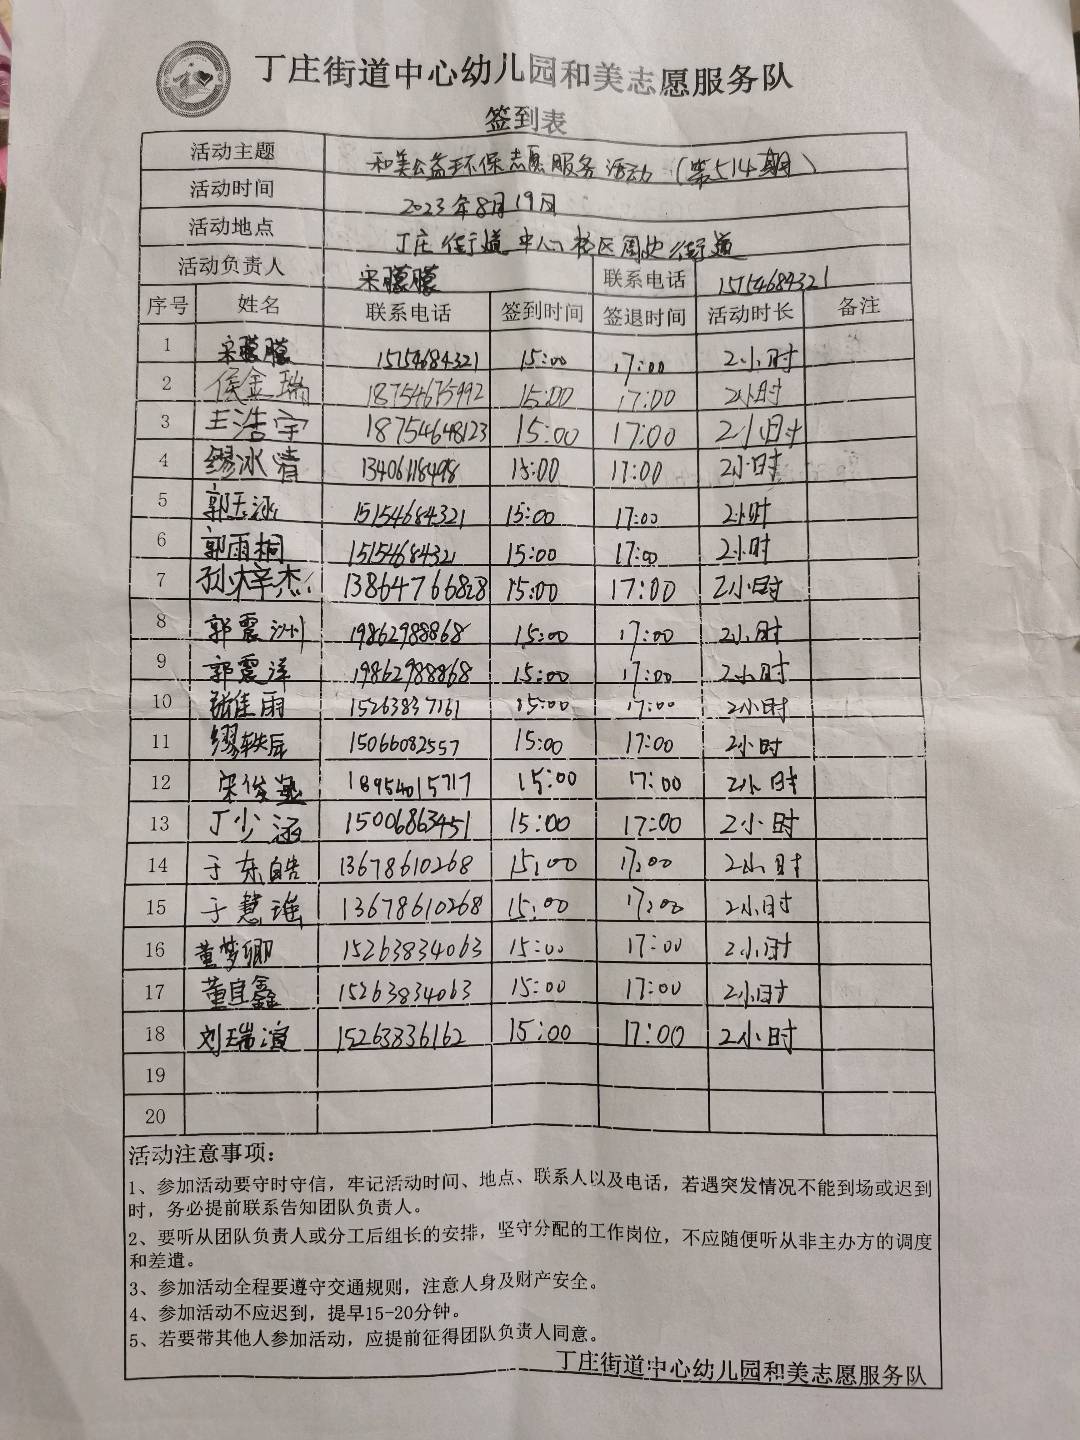 丁庄街道中心幼儿园和美志愿服务队
签到表
活动主题 和美公益环保志愿服务活动（第514期）
活动时间 2023年8月19日
活动地点 丁庄街道中心校区周边街道
活动负责人 宋朦朦 联系电话 15154684321
序号 姓名 联系电话 签到时间 签退时间 活动时长 备注
1 宋朦朦 15154684321 15:00 17:00 2小时
2 侯金瑞 18754675492 15:00 17:00 2小时
3 王浩宇 18754648123 15:00 17:00 2小时
4 缪冰清 13406118498 15:00 17:00 2小时
5 郭玉涵 15154684321 15:00 17:00 2小时
6 郭雨桐 15154684321 15:00 17:00 2小时
7 孙梓杰 13864766828 15:00 17:00 2小时
8 郭震州 19862988868 15:00 17:00 2小时
9 郭震洋 19862988868 15:00 17:00 2小时
10 张佳雨 15263837161 15:00 17:00 2小时
11 缪轶辰 15066082557 15:00 17:00 2小时
12 宋俊 18954015717 15:00 17:00 2小时
13 丁少涵 15006863451 15:00 17:00 2小时
14 于东皓 13678610268 15:00 17:00 2小时
15 于慧瑶 13678610268 15:00 17:00 2小时
16 董梦卿 15263834063 15:00 17:00 2小时
17 董宜鑫 15263834063 15:00 17:00 2小时
18 刘瑞谊 15263836162 15:00 17:00 2小时
19
20
活动注意事项：
1、参加活动要守时守信，牢记活动时间、地点、联系人以及电话，若遇突发情况不能到场或迟到
时，务必提前联系告知团队负责人。
2、要听从团队负责人或分工后组长的安排，坚守分配的工作岗位，不应随便听从非主办方的调度
和差遣。
3、参加活动全程要遵守交通规则，注意人身及财产安全。
4、参加活动不应迟到，提早15-20分钟。
5、若要带其他人参加活动，应提前征得团队负责人同意。
丁庄街道中心幼儿园和美志愿服务队